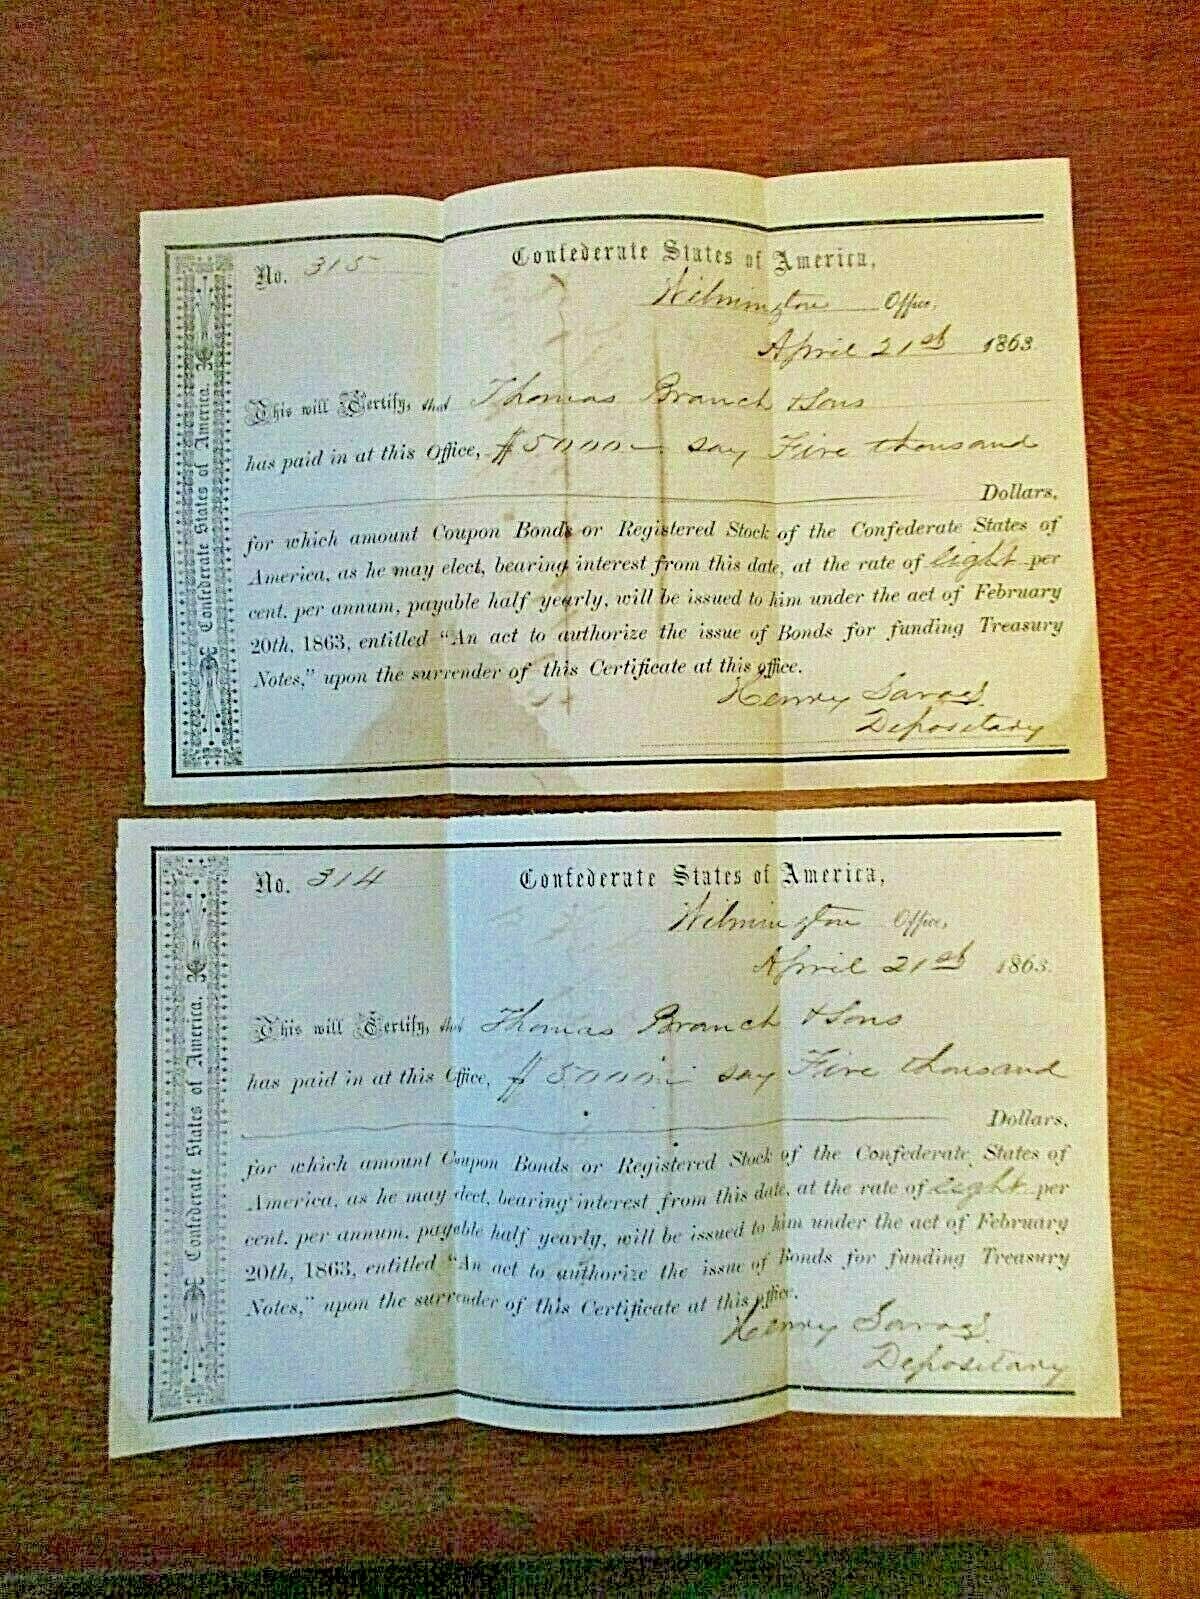 Confederate States of America.
No. 315
Confederate States of America,
Wilmington Office,
April 21st 1863
This will Certify, that Thomas Branch & Sons
has paid in at this Office, $5000 say Five thousand
Dollars,
for which amount Coupon Bonds or Registered Stock of the Confederate States of
America, as he may elect, bearing interest from this date, at the rate of eight per
cent. per annum, payable half yearly, will be issued to him under the act of February
20th, 1863, entitled "An act to authorize the issue of Bonds for funding Treasury
Notes," upon the surrender of this Certificate at this office.
Henry Savage
Depositary
Confederate States of America.
No. 314
Confederate States of America,
Wilmington Office,
April 21st 1863.
This will Certify, that Thomas Branch & Sons
has paid in at this Office, $5000 say Five thousand
Dollars,
for which amount Coupon Bonds or Registered Stock of the Confederate States of
America, as he may elect, bearing interest from this date, at the rate of eight per
cent. per annum, payable half yearly, will be issued to him under the act of February
20th, 1863, entitled "An act to authorize the issue of Bonds for funding Treasury
Notes," upon the surrender of this Certificate at this office.
Henry Savage
Depositary